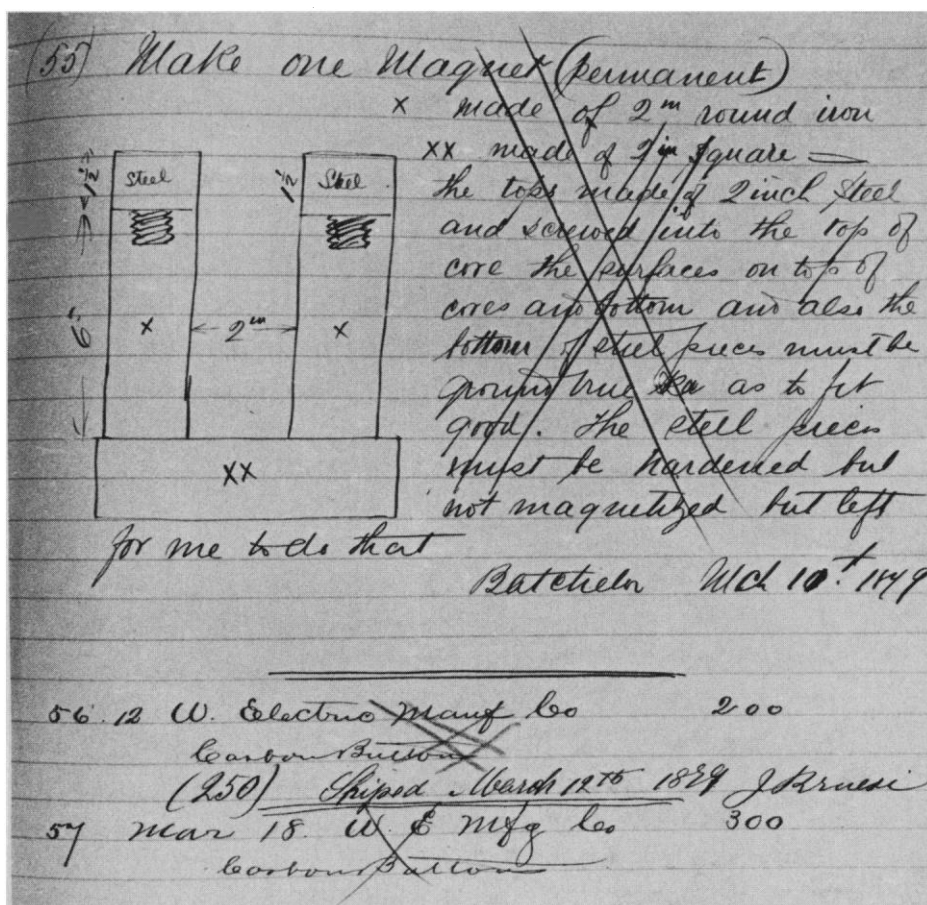 (55) Make one Magnet (permanent)
x made of 2 in round iron
xx made of 2 in square —
the tops made of 2 inch Steel
and screwed into the top of
core the surfaces on top of
cores and bottom and also the
bottom of steel pieces must be
ground true as to fit
good. The steel pieces
must be hardened but
not magnetized but left
for me to do that
1½"
Steel
1½
Steel
6"
x
2 in
x
xx
Batchelor Mch 10th 1879
56. 12 W. Electric Manuf Co 200
Carbon Button
(250) Shiped March 12th 1879 J Kruesi
57 Mar 18. W. E Mfg Co 300
Carbon Button